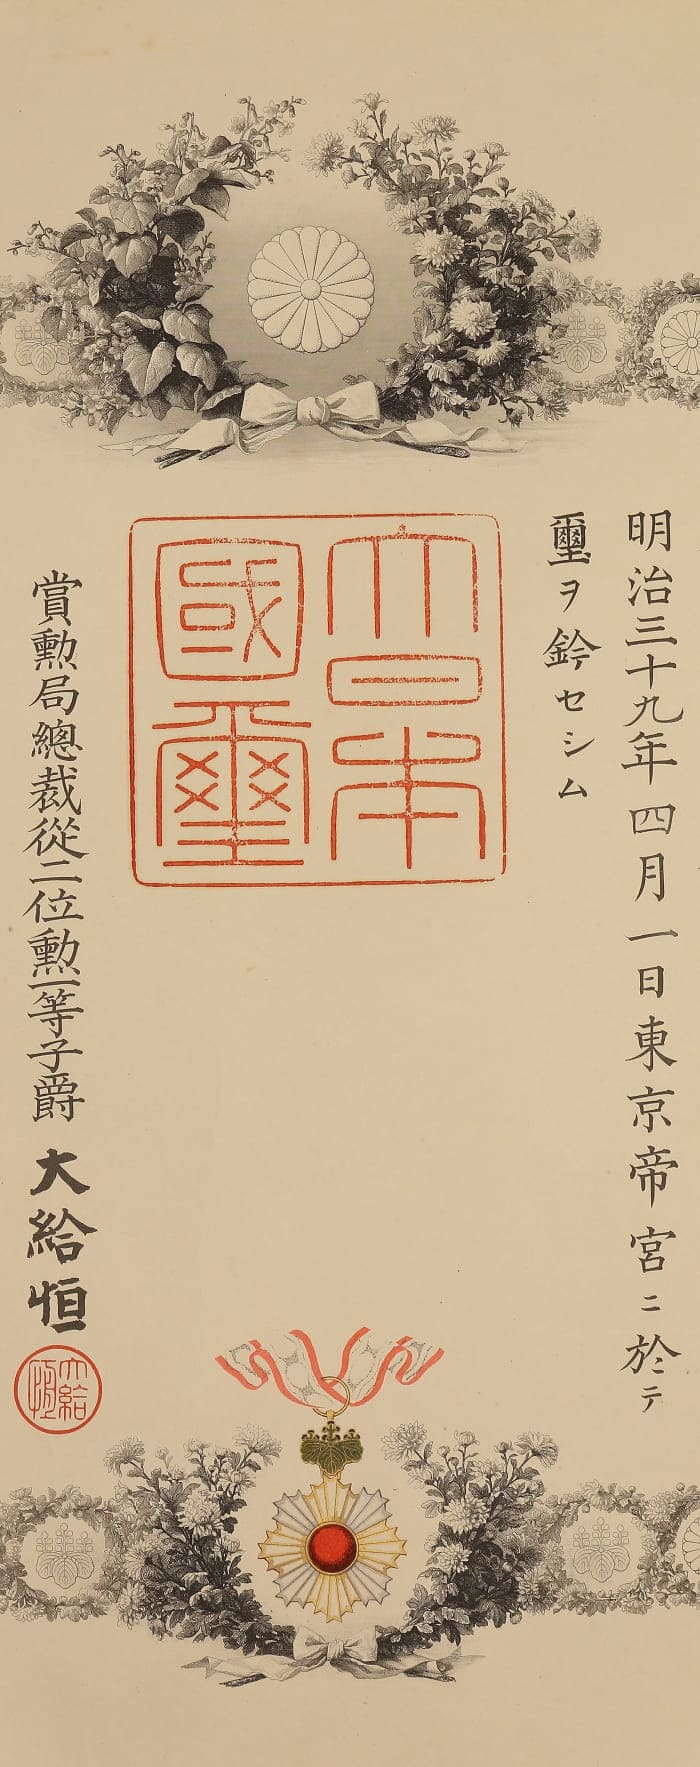 明治三十九年四月一日東京帝宮ニ於テ
璽ヲ鈐セシム
大日本
國璽
賞勲局總裁從二位勲一等子爵 大給恒
大給
恒